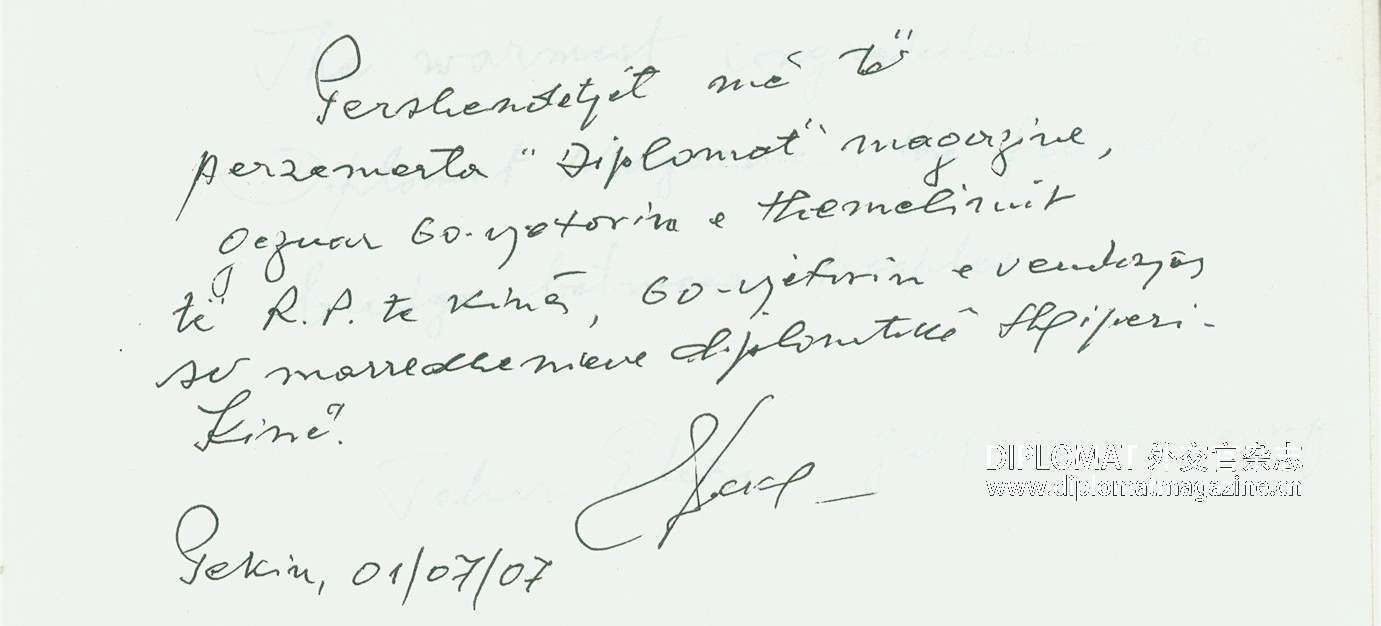 Pershendetjet më të
perzemerta "Diplomat" magazine,
gezuar 60-vjetorin e themelimit
të R.P. te Kinës, 60-vjetorin e vendosjes
së marredhenieve diplomatikë Shqiperi-
Kinë.
Pekin, 01/07/07
DIPLOMAT 外交官杂志
www.diplomatmagazine.cn